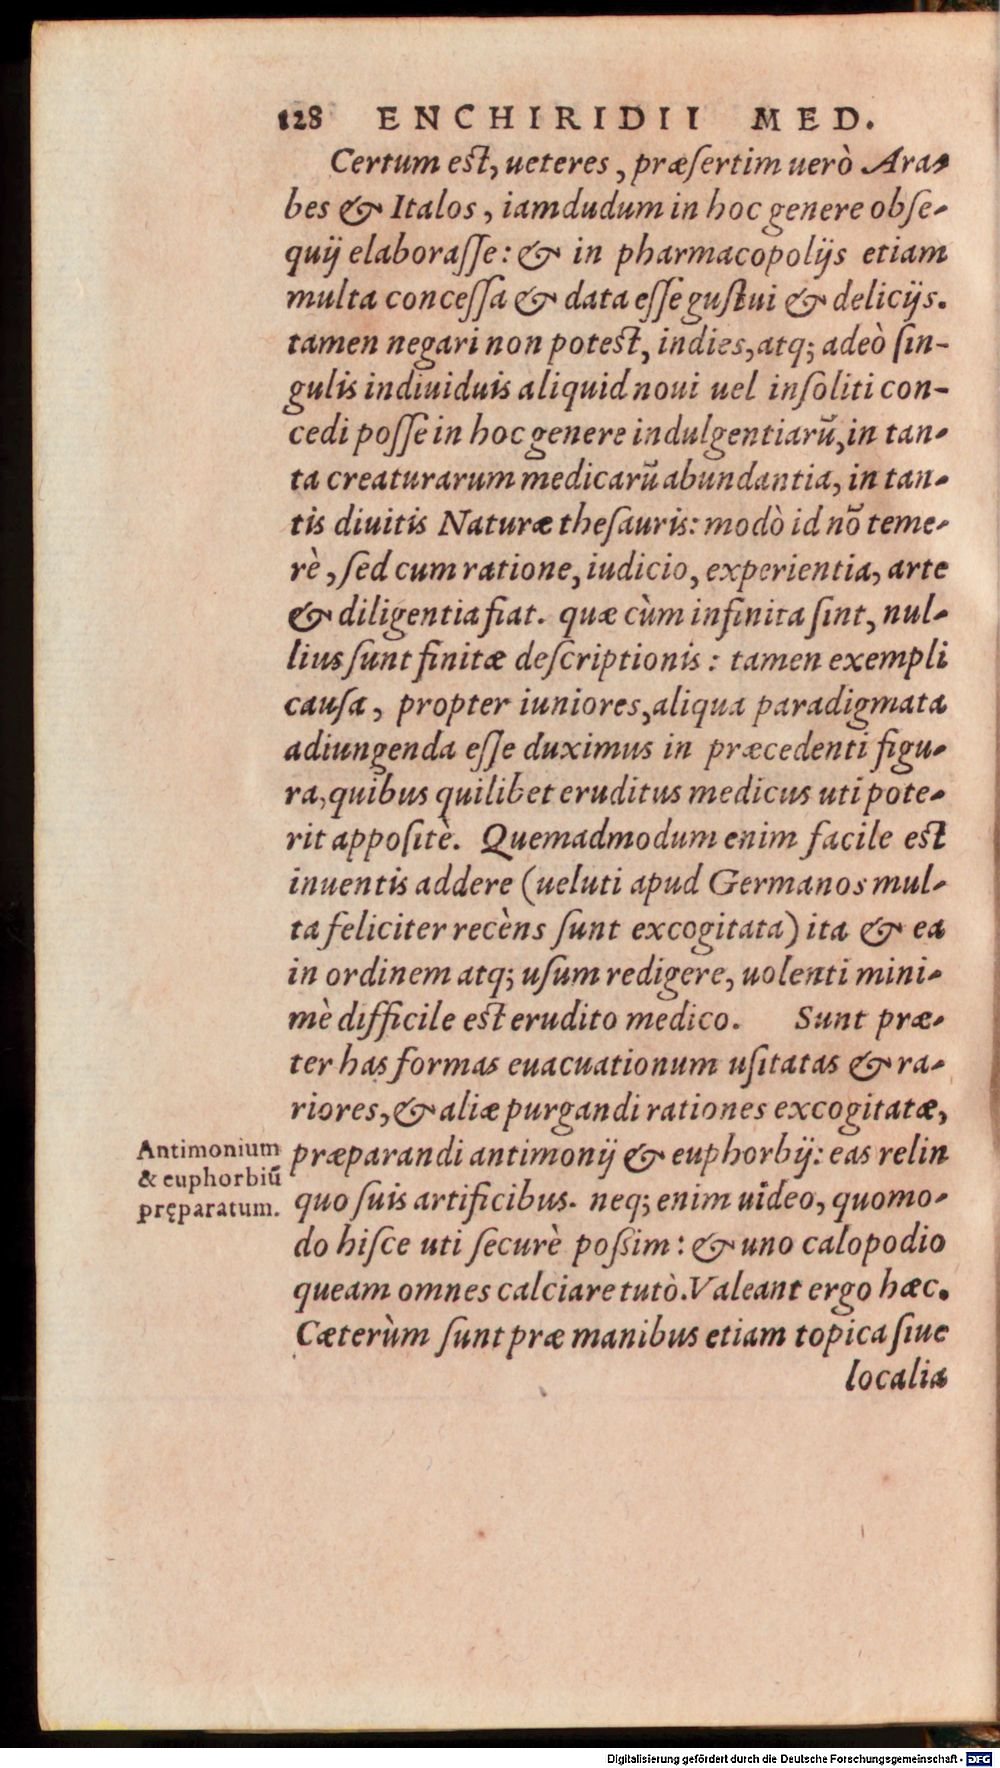 128 ENCHIRIDII MED.
Certum est, ueteres, præſertim uerò Ara-
bes & Italos, iamdudum in hoc genere obſe-
quij elaboraſſe: & in pharmacopolijs etiam
multa conceſſa & data eſſe guſtui & delicijs.
tamen negari non potest, indies, atq; adeò ſin-
gulis indiuiduis aliquid noui uel inſoliti con-
cedi poſſe in hoc genere indulgentiarū, in tan-
ta creaturarum medicarū abundantia, in tan-
tis diuitis Naturæ theſauris: modò id nō teme-
rè, ſed cum ratione, iudicio, experientia, arte
& diligentia fiat. quæ cùm infinita ſint, nul-
lius ſunt finitæ deſcriptionis: tamen exempli
cauſa, propter iuniores, aliqua paradigmata
adiungenda eſſe duximus in præcedenti figu-
ra, quibus quilibet eruditus medicus uti pote-
rit appoſitè. Quemadmodum enim facile est
inuentis addere (ueluti apud Germanos mul-
ta feliciter recèns ſunt excogitata) ita & ea
in ordinem atq; uſum redigere, uolenti mini-
mè difficile est erudito medico. Sunt præ-
ter has formas euacuationum uſitatas & ra-
riores, & aliæ purgandi rationes excogitatæ,
Antimonium
& euphorbiū
pręparatum.
præparandi antimonij & euphorbij: eas relin
quo ſuis artificibus. neq; enim uideo, quomo-
do hiſce uti ſecurè poßim: & uno calopodio
queam omnes calciare tutò. Valeant ergo hæc.
Cæterùm ſunt præ manibus etiam topica ſiue
localia
Digitalisierung gefördert durch die Deutsche Forschungsgemeinschaft - DFG